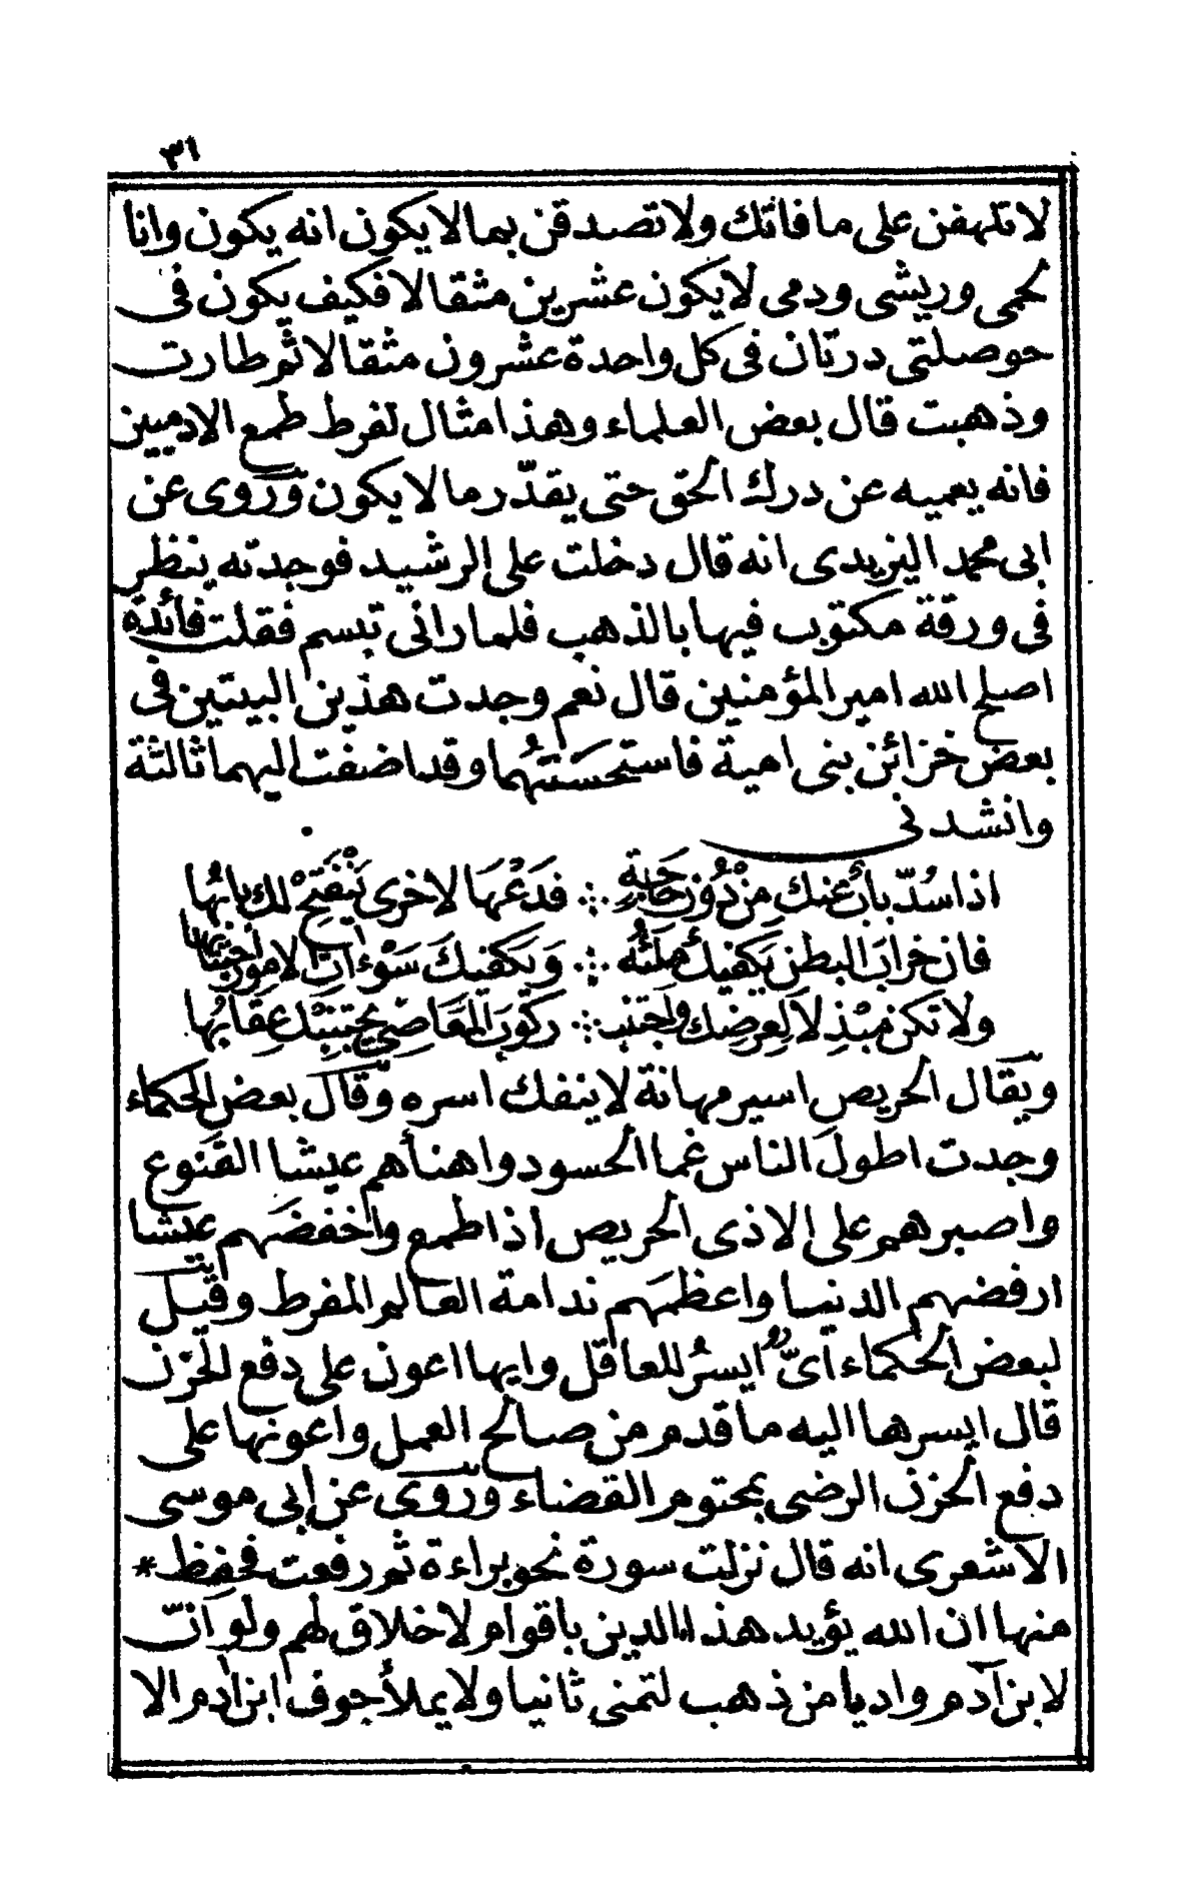 ٣١
لاتلهفن على مافاتك ولاتصدقن بمالايكون انه يكون وانا
لحمى وريشى ودمى لايكون عشرين مثقالا فكيف يكون فى
حوصلتى درتان فى كل واحدة عشرون مثقالا ثم طارت
وذهبت قال بعض العلماء وهذا مثال لفرط طمع الادميين
فانه يعميه عن درك الحق حتى يقدّر مالا يكون وروى عن
ابى محمد اليزيدى انه قال دخلت على الرشيد فوجدته ينظر
فى ورقة مكتوب فيها بالذهب فلما رانى تبسم فقلت فائدة
اصلح الله امير المؤمنين قال نعم وجدت هذين البيتين فى
بعض خزائن بنى امية فاستحسنتهما وقد اضفت اليهما ثالثة
وانشدنى
اذا سُدّ بابٌ عنك مِنْ دُونِ حَاجَةٍ ؞ فَدَعْهَا لاخرى يَنْفَتِحْ لك بابُها
فان خرابَ البطن يَكفيك مِلئُهُ ؞ وَيَكفيكَ سَوْءاتِ الامورِ اجتنابها
ولا تكن مِبْذِلاً لِعرضِك واجتنب ؞ ركوبَ المَعَاصِى يجتنبْك عِقَابُها
ويقال الحريص اسير مهانة لاينفك اسره وقال بعض الحكماء
وجدت اطولَ الناس غما الحسود واهنأهم عيشا القَنوع
واصبرهم على الاذى الحريص اذا طمع واخفضَهم عيشا
ارفضهم الدنيا واعظمَهم ندامة العالم المفرط وقيل
لبعض الحكماء اىّ ايسرُ للعاقل وايها اعون على دفع الحزن
قال ايسرها اليه ماقدم من صالح العمل واعونها على
دفع الحزن الرضى بمحتوم القضاء وروى عن ابى موسى
الاشعرى انه قال نزلت سورة نحو براءة ثم رفعت فحفظ *
منها ان الله يؤيد هذا الدين باقوام لاخلاق لهم ولو انّ
لابن آدم واديا من ذهب لتمنى ثانيا ولايملأ جوف ابن ادم الا